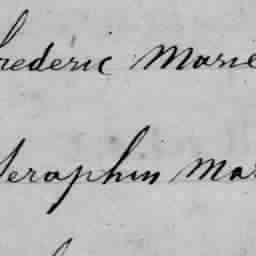 Frederic Marie
Seraphin Mar